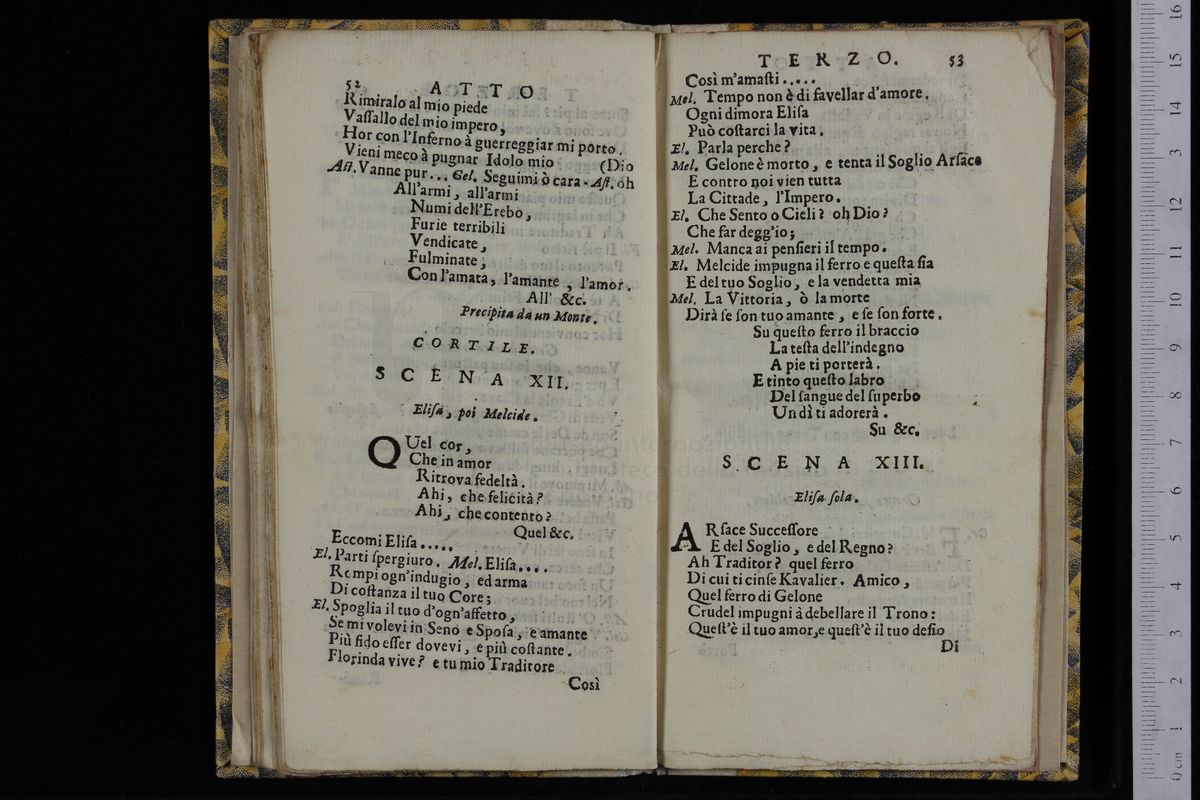 52 ATTO
Rimiralo al mio piede
Vaſſallo del mio impero,
Hor con l'Inferno à guerreggiar mi porto.
Vieni meco à pugnar Idolo mio (Dio
Aſt. Vanne pur... Gel. Seguimi ò cara - Aſt. oh
All'armi, all'armi
Numi dell'Erebo,
Furie terribili
Vendicate,
Fulminate;
Con l'amata, l'amante, l'amor.
All' &c.
Precipita da un Monte.
CORTILE.
SCENA XII.
Eliſa, poi Melcide.
QUel cor,
Che in amor
Ritrova fedeltà.
Ahi, che felicità?
Ahi, che contento?
Quel &c.
Eccomi Eliſa.....
El. Parti ſpergiuro. Mel. Eliſa....
Rompi ogn'indugio, ed arma
Di coſtanza il tuo Core;
El. Spoglia il tuo d'ogn'affetto,
Se mi volevi in Seno e Spoſa, e amante
Più fido eſſer dovevi, e più coſtante.
Florinda vive? e tu mio Traditore
Così
TERZO. 53
Così m'amaſti.....
Mel. Tempo non è di favellar d'amore.
Ogni dimora Eliſa
Può coſtarci la vita.
El. Parla perche?
Mel. Gelone è morto, e tenta il Soglio Arſace
E contro noi vien tutta
La Cittade, l'Impero.
El. Che Sento o Cieli? oh Dio?
Che far degg'io;
Mel. Manca ai penſieri il tempo.
El. Melcide impugna il ferro e queſta ſia
E del tuo Soglio, e la vendetta mia
Mel. La Vittoria, ò la morte
Dirà ſe ſon tuo amante, e ſe ſon forte.
Su queſto ferro il braccio
La teſta dell'indegno
A pie ti porterà.
E tinto queſto labro
Del ſangue del ſuperbo
Un dì ti adorerà.
Su &c.
SCENA XIII.
Eliſa ſola.
ARſace Succeſſore
E del Soglio, e del Regno?
Ah Traditor? quel ferro
Di cui ti cinſe Kavalier. Amico,
Quel ferro di Gelone
Crudel impugni à debellare il Trono:
Queſt'è il tuo amor, e queſt'è il tuo deſio
Di